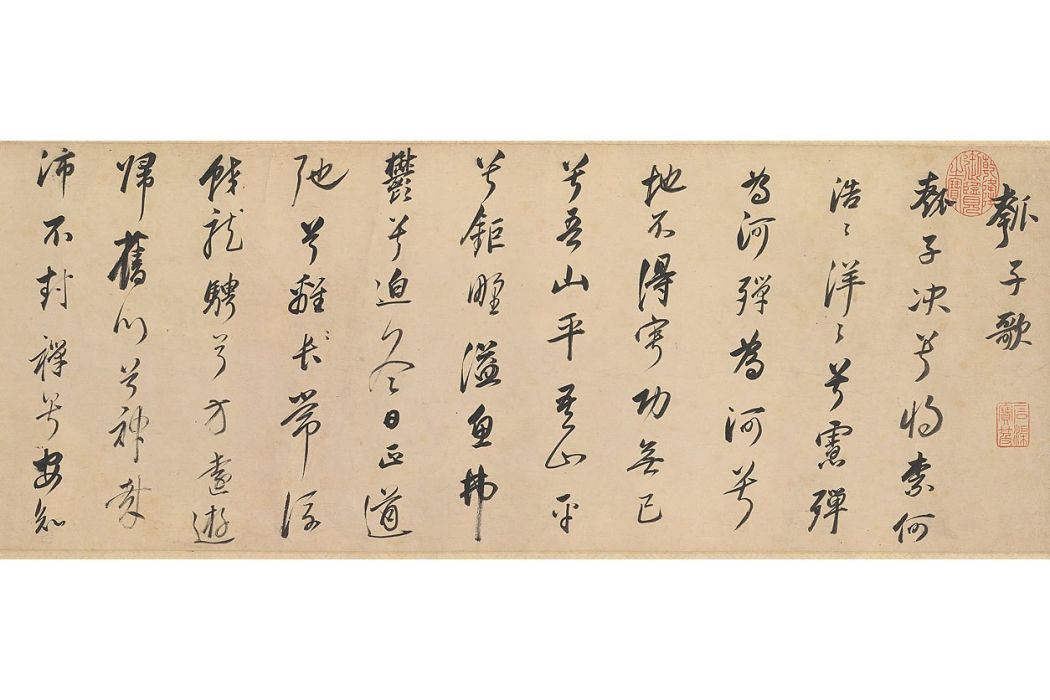 瓠子歌
瓠子决兮将柰何
浩〻洋〻兮慮殫
為河殫為河兮
地不得寧功無已
兮吾山平吾山平
兮鉅野溢魚弗
鬱兮迫冬日正道
弛兮離常流
蛟龍騁兮方遠遊
歸舊川兮神哉
沛不封禪兮安知
乾隆御覽之寶